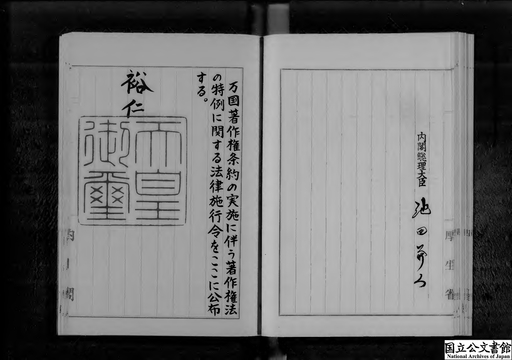 内閣総理大臣
池田勇人
厚生省
万国著作権条約の実施に伴う著作権法
の特例に関する法律施行令をここに公布
する。
裕仁
天皇
御璽
内閣
国立公文書館
National Archives of Japan